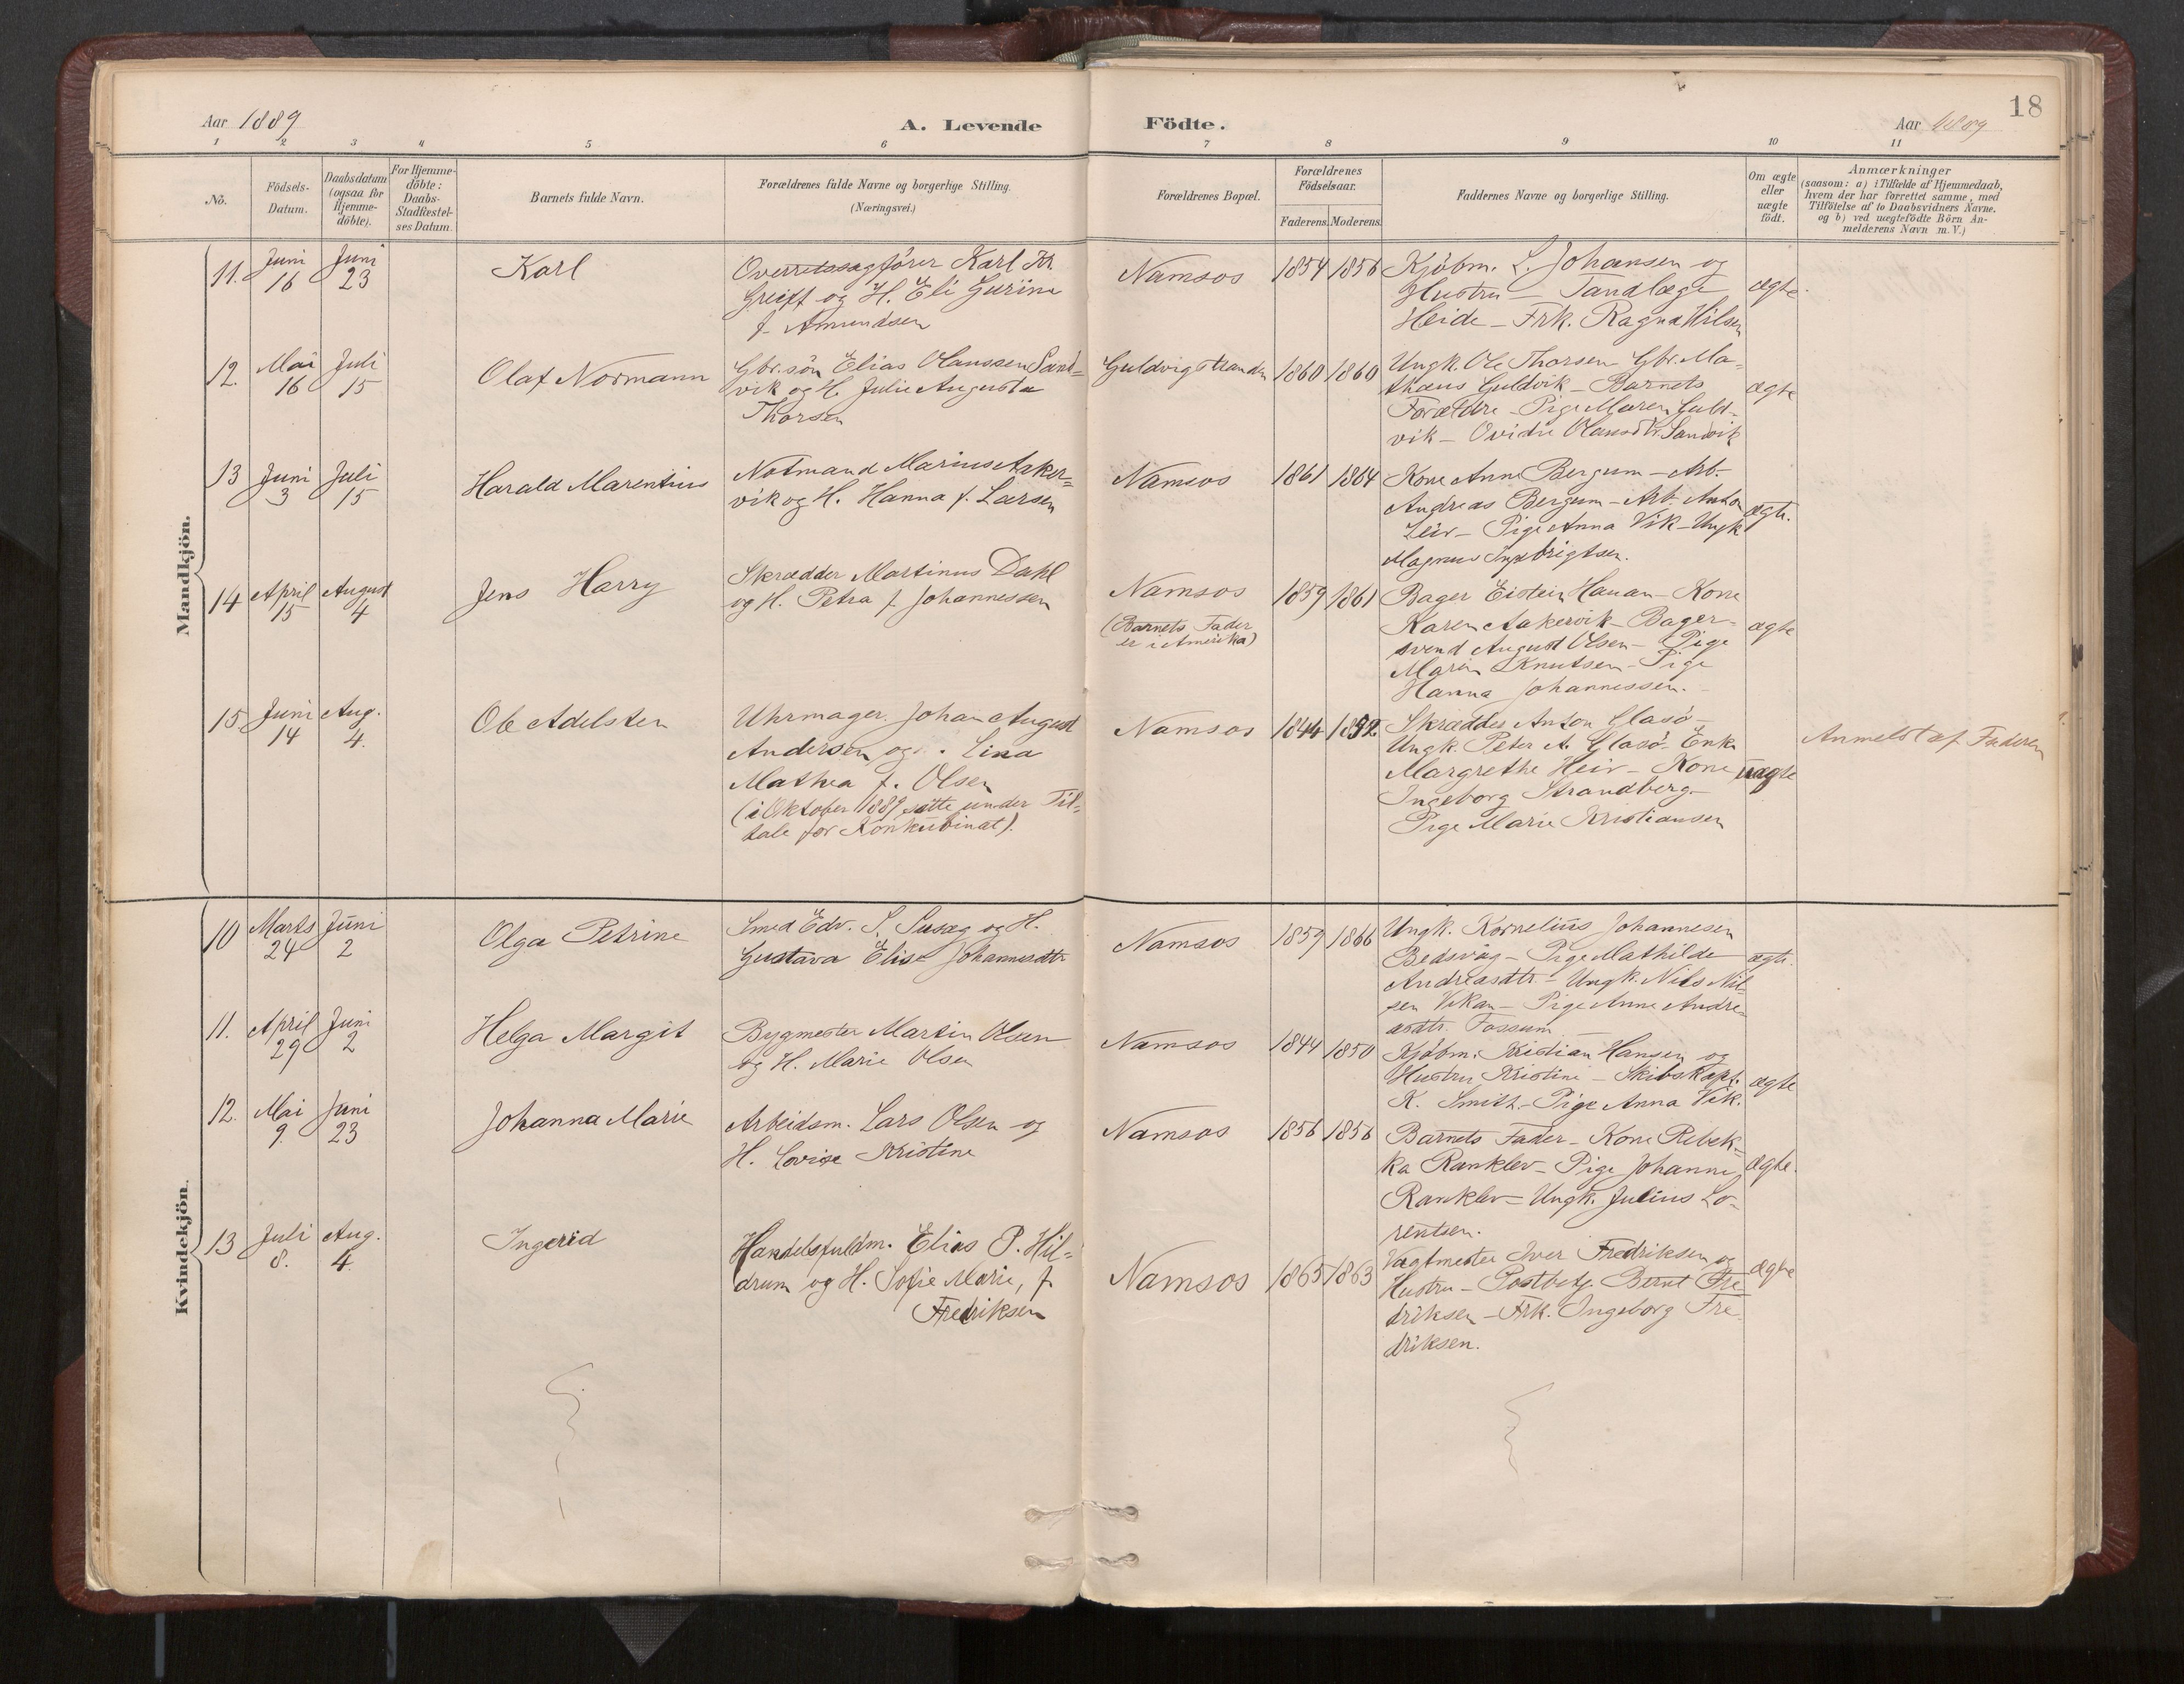 18
Aar 1889
A. Levende Födte.
Aar 1889
1 2 3 4 5 6 7 8 9 10 11
Nö.
Födsels-Datum.
Daabsdatum (ogsaa for Hjemme-döbte).
For Hjemme-döbte: Daabs-Stadfestel-ses Datum.
Barnets fulde Navn.
Forældrenes fulde Navne og borgerlige Stilling.
(Næringsvei.)
Forældrenes Bopæl.
Forældrenes Födselsaar.
Faderens. Moderens.
Faddernes Navne og borgerlige Stilling.
Om ægte eller uægte födt.
Anmærkninger
(saasom: a) i Tilfælde af Hjemmedaab,
hvem der har forrettet samme, med
Tilföielse af to Daabsvidners Navne,
og b) ved uegtefödte Börn An-
melderens Navn m. V.)
Mandkjön.
11. Juni 16 Juni 23
Karl
Overretssagförer Karl Kr.
Greiff og H. Eli Gurine
f. Amundsen
Namsos
1854 1856
Kjöbm. L. Johansen og
Hustru – Tandlæge
Heide – Frk. Ragna Hilsen
ægte.
12. Mai 16 Juli 15
Olaf Normann
Gbr.sön Elias Olaussen Sand-
vik og H. Julie Augusta
Thorsen
Guldvigstranden
1860 1860
Ungk. Ole Thorsen – Gbr. Ma-
thæus Guldvik – Barnets
Forældre – Pige Maren Guld-
vik – Ovidie Olausdtr. Sandvik
ægte
13 Juni 3 Juli 15
Harald Marentius
Notmand Marius Aaker-
vik og H. Hanna f. Larsen
Namsos
1861 1864
Kone Anne Bergum – Arb.
Andreas Bergum – Arb. Anton
Leir – Pige Anna Vik – Ungk
Magnus Ingebrigtsen.
ægte.
14 April 15 August 4
Jens Harry
Skrædder Martinus Dahl
og H. Petra f. Johannessen
Namsos
(Barnets Fader
er i Amerika)
1859 1861
Bager Eistein Hauan – Kone
Karen Aakervik – Bager-
svend August Olsen – Pige
Marin Knutsen – Pige
Hanna Johannessen.
ægte
15 Juni 14 Aug. 4.
Ole Adelsten
Uhrmager Johan August
Andersen og Lina
Mathea f. Olsen
(i Oktober 1889 satte under Til-
tale for Konkubinat).
Namsos
1844
Skrædder Anton Glasö –
Ungk. Peter A. Glasö – Enke
Margrethe Heir – Kone
Ingeborg Strandberg –
Pige Marie Kristiansen
uægte
Anmeldt af Faderen
Kvindekjön.
10 Marts 24 Juni 2
Olga Petrine
Smed Edv. S. Susag og H.
Gustava Elise Johannesdtr
Namsos
1859 1866
Ungk. Kornelius Johannesen
Bedsvåg – Pige Mathilde
Andreasdtr – Ungk. Nils Nil-
sen Vikan – Pige Anne Andre-
asdtr. Fossum
ægte.
11. April 29 Juni 2
Helga Margit
Bygmester Martin Olsen
og H. Marie Olsen
Namsos
1844 1850
Kjöbm. Kristian Hansen og
Hustru Kristine – Skibskapt.
K. Smith – Pige Anna Vik.
ægte
12. Mai 9. Juni 23
Johanna Marie
Arbeidsm. Lars Olsen og
H. Lovise Kristine
Namsos
1856 1856
Barnets Fader – Kone Rebek-
ka Ranklev – Pige Johanne
Ranklev – Ungk. Julius Lo-
rentsen.
Ægte.
13 Juli 8. Aug. 4
Ingerid
Handelsfuldm. Elias P. Hil-
drum og H. Sofie Marie, f.
Fredriksen
Namsos
1865 1863
Vagtmester Iver Fredriksen og
Hustru – Postbetj. Bernt Fre-
driksen – Frk. Ingeborg Fre-
driksen.
ægte